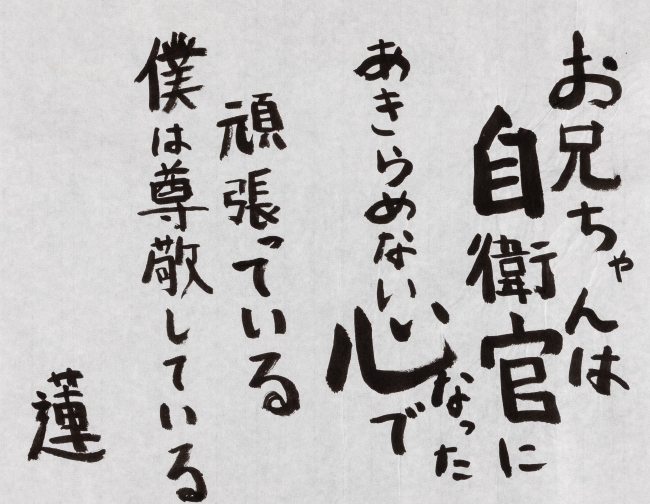 お兄ちゃんは
自衛官に
なった
あきらめない心で
頑張っている
僕は尊敬している
蓮